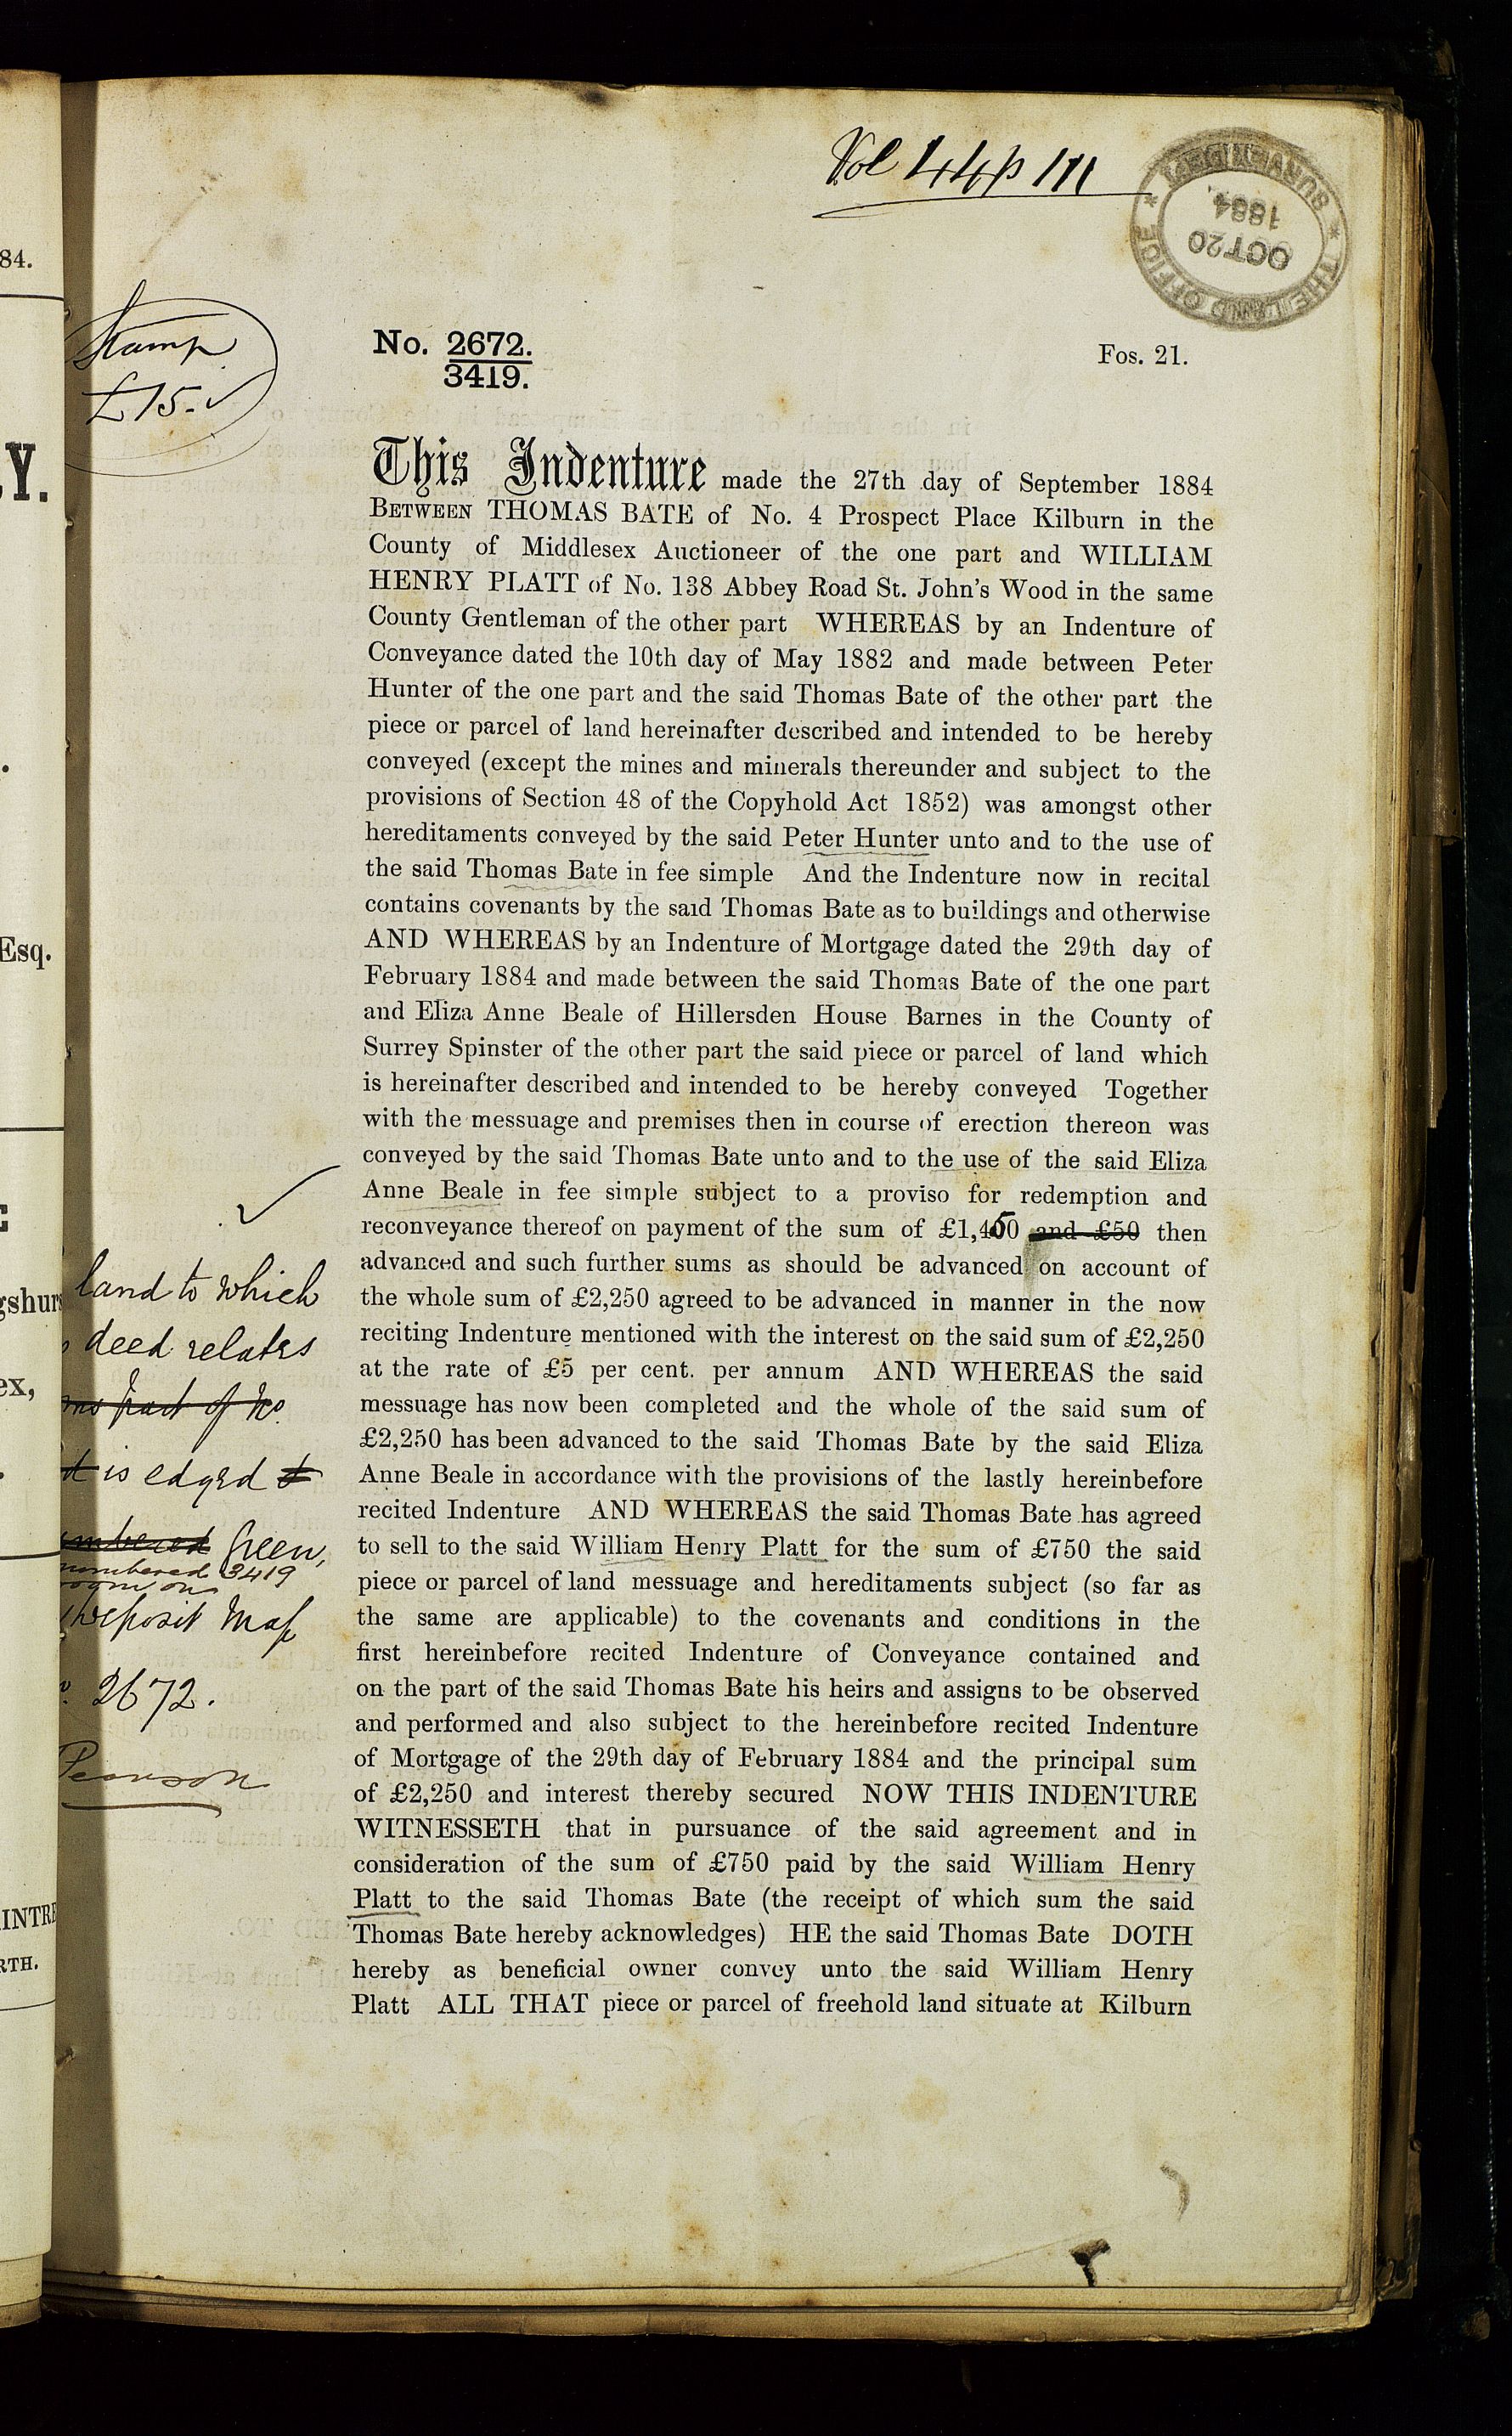 Vol 44 p 111
THE LAND OFFICE
OCT 20
1884
84.
Stamp
£15.
No. 2672.
3419.
Fos. 21.
Y.
This Indenture made the 27th day of September 1884
BETWEEN THOMAS BATE of No. 4 Prospect Place Kilburn in the
County of Middlesex Auctioneer of the one part and WILLIAM
HENRY PLATT of No. 138 Abbey Road St. John's Wood in the same
County Gentleman of the other part WHEREAS by an Indenture of
Conveyance dated the 10th day of May 1882 and made between Peter
Hunter of the one part and the said Thomas Bate of the other part the
piece or parcel of land hereinafter described and intended to be hereby
conveyed (except the mines and minerals thereunder and subject to the
provisions of Section 48 of the Copyhold Act 1852) was amongst other
hereditaments conveyed by the said Peter Hunter unto and to the use of
the said Thomas Bate in fee simple And the Indenture now in recital
contains covenants by the said Thomas Bate as to buildings and otherwise
AND WHEREAS by an Indenture of Mortgage dated the 29th day of
February 1884 and made between the said Thomas Bate of the one part
and Eliza Anne Beale of Hillersden House Barnes in the County of
Surrey Spinster of the other part the said piece or parcel of land which
is hereinafter described and intended to be hereby conveyed Together
with the messuage and premises then in course of erection thereon was
conveyed by the said Thomas Bate unto and to the use of the said Eliza
Anne Beale in fee simple subject to a proviso for redemption and
reconveyance thereof on payment of the sum of £1,450 and £50 then
advanced and such further sums as should be advanced on account of
the whole sum of £2,250 agreed to be advanced in manner in the now
reciting Indenture mentioned with the interest on the said sum of £2,250
at the rate of £5 per cent. per annum AND WHEREAS the said
messuage has now been completed and the whole of the said sum of
£2,250 has been advanced to the said Thomas Bate by the said Eliza
Anne Beale in accordance with the provisions of the lastly hereinbefore
recited Indenture AND WHEREAS the said Thomas Bate has agreed
to sell to the said William Henry Platt for the sum of £750 the said
piece or parcel of land messuage and hereditaments subject (so far as
the same are applicable) to the covenants and conditions in the
first hereinbefore recited Indenture of Conveyance contained and
on the part of the said Thomas Bate his heirs and assigns to be observed
and performed and also subject to the hereinbefore recited Indenture
of Mortgage of the 29th day of February 1884 and the principal sum
of £2,250 and interest thereby secured NOW THIS INDENTURE
WITNESSETH that in pursuance of the said agreement and in
consideration of the sum of £750 paid by the said William Henry
Platt to the said Thomas Bate (the receipt of which sum the said
Thomas Bate hereby acknowledges) HE the said Thomas Bate DOTH
hereby as beneficial owner convey unto the said William Henry
Platt ALL THAT piece or parcel of freehold land situate at Kilburn
land to which
deed relates
part of No.
is edged
Green,
numbered 3419
on
deposit Map
2672.
Pearson
Esq.
gshurs
ex,
INTRE
RTH.